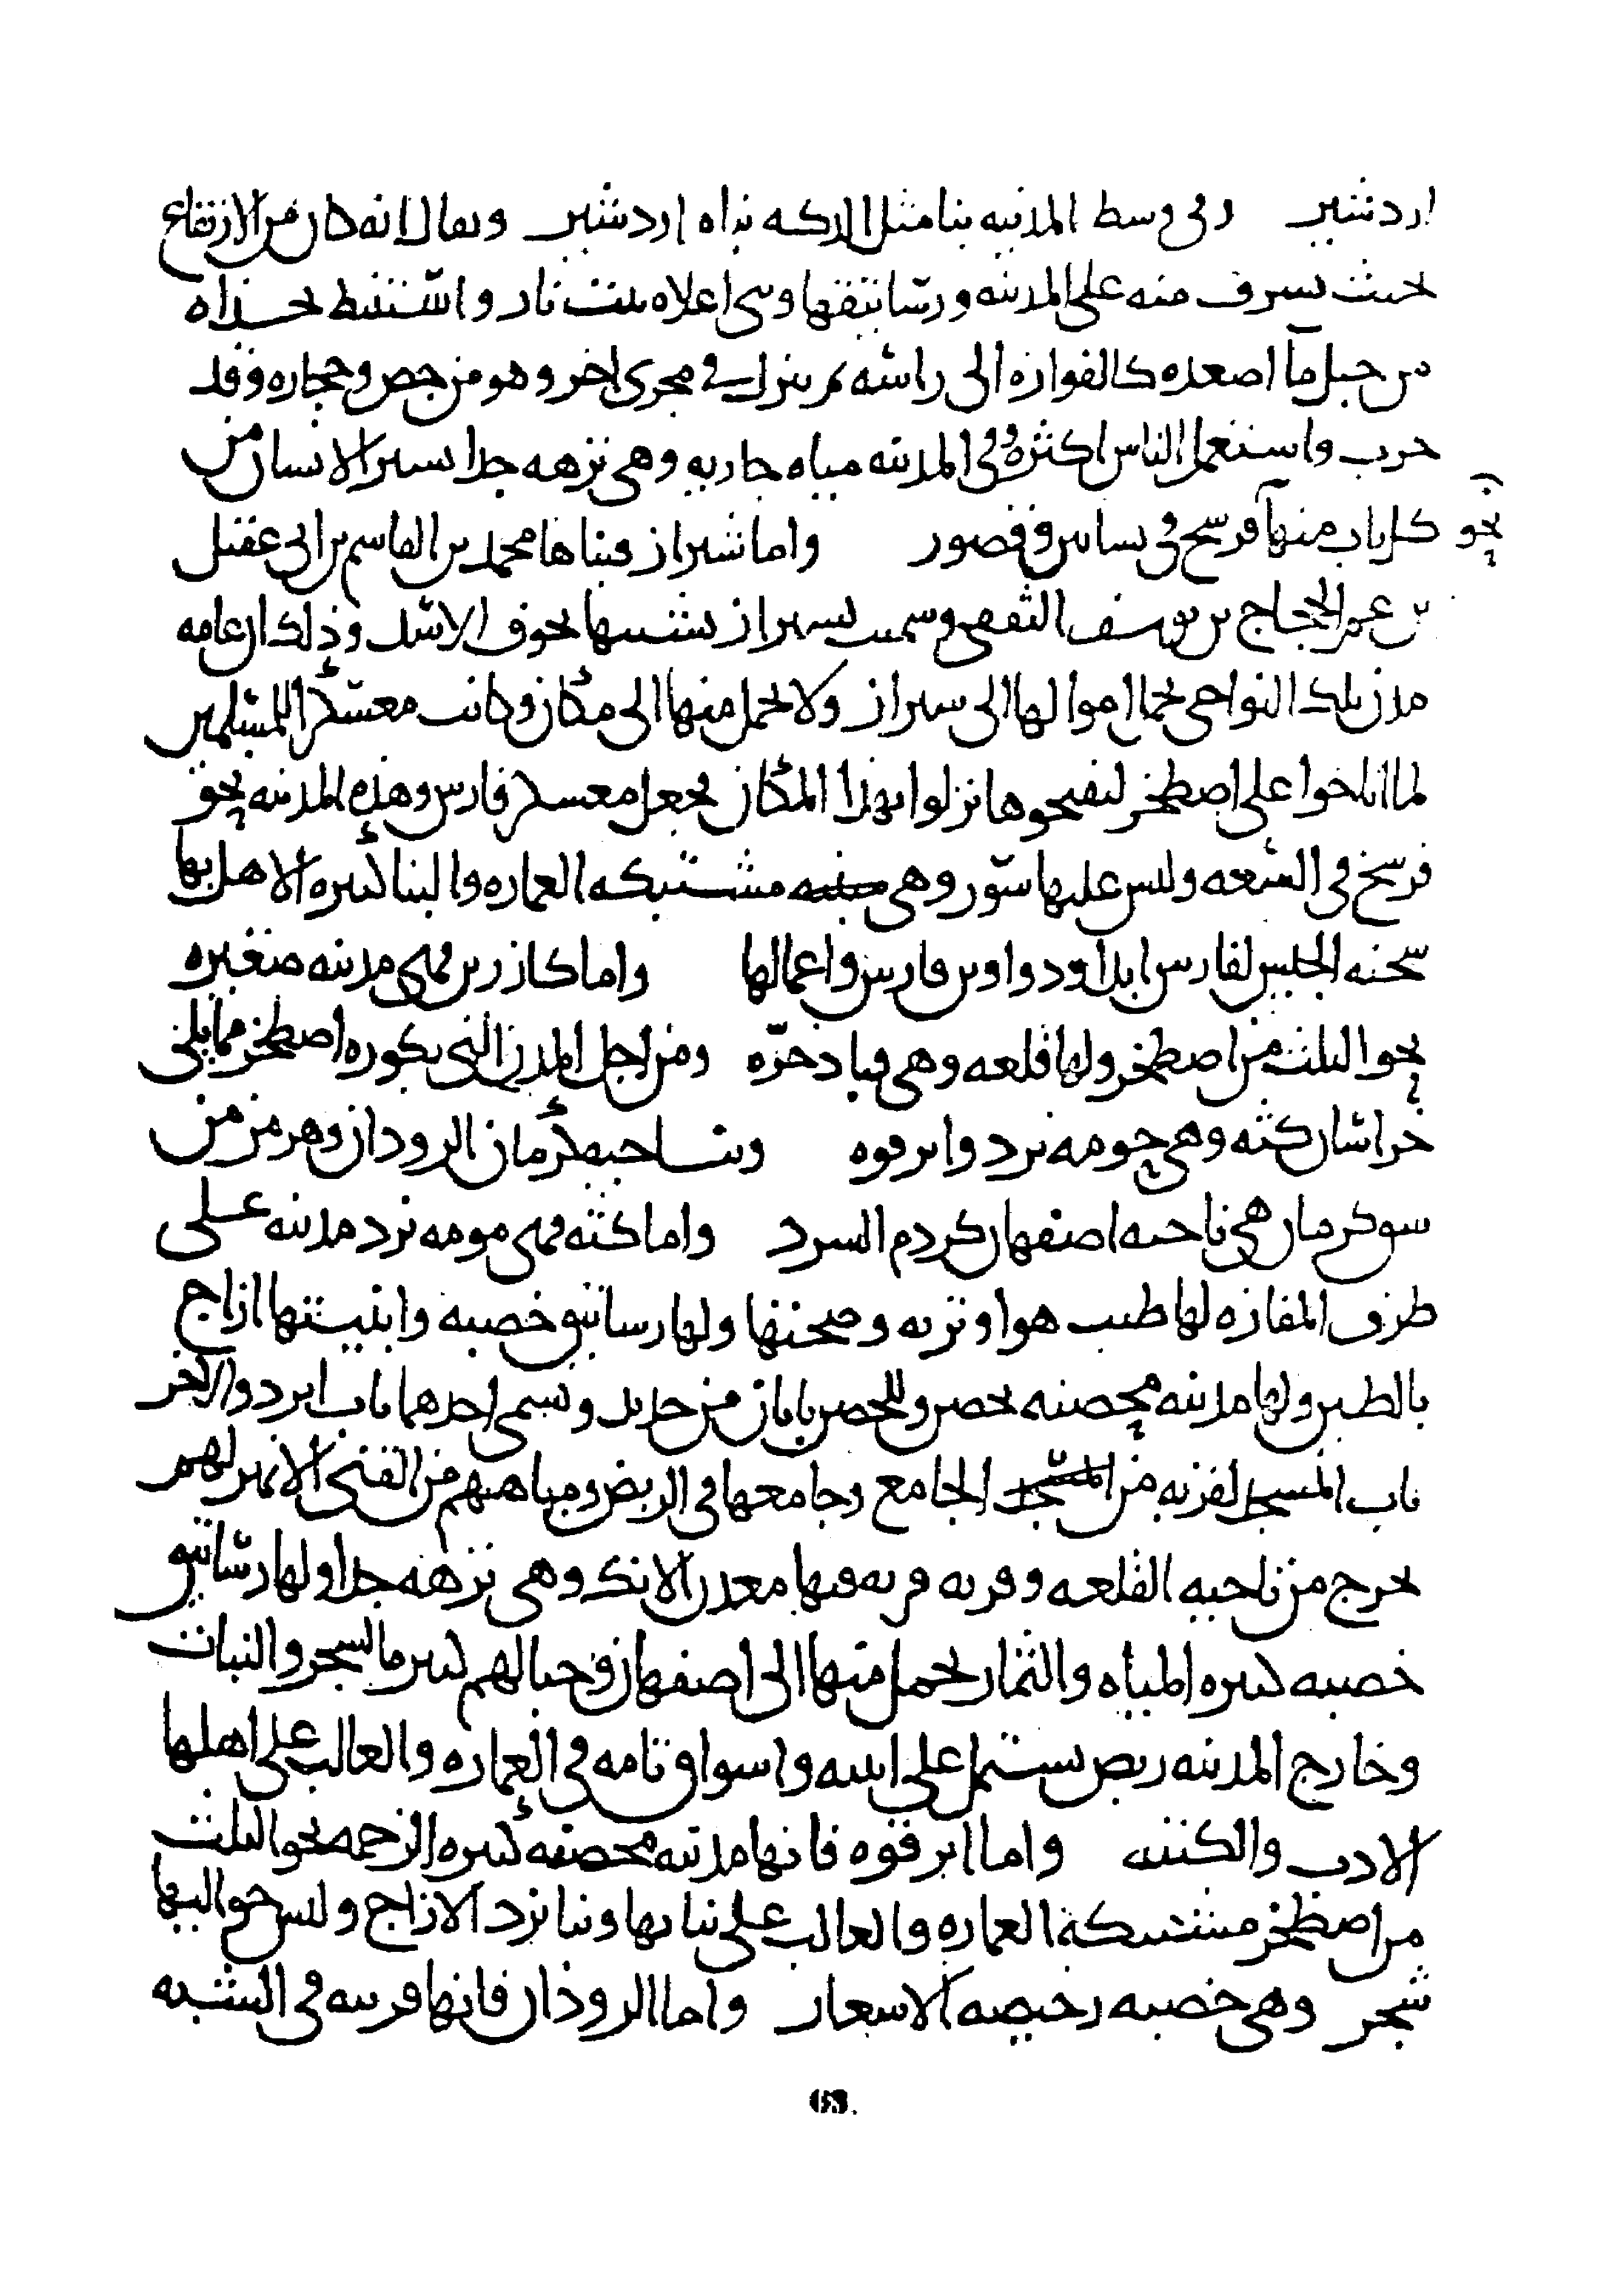 اردشير وفى وسط المدينه بنا مثل الدكه بناه اردشير ويقال انه كان من الارتفاع
بحيث يشرف منه على المدينه ورساتيقها وفى اعلاه بيت نار واستنبط بحذاه
من جبل مآ اصعده كالفواره الى راسه ثم ينزل فى مجرى اخر وهو من جص وحجاره وقد
خرب واستعمل الناس اكثره وفى المدينه مياه جاريه وهى نزهه جدا يسير الانسان من
كل باب منها نحو فرسخ فى بساتين وقصور واما شيراز فبناها محمد بن القاسم بن ابى عقيل
بن عم الحجاج بن يوسف الثقفى وسميت بشيراز تشبيها بجوف الاسد وذلك ان عامه
مدن تلك النواحى يحمل اموالها الى شيراز ولا يحمل منها الى مكان وكانت معسكرا للمسلمين
لما اناخوا على اصطخر ليفتحوها نزلوا بهذا المكان فجعل معسكر فارس وهذه المدينه نحو
فرسخ فى السعه وليس عليها سور وهى مشتبكه العماره والبنا كثيره الاهل بها
شحنه الجيش لفارس ابدا ودواوين فارس واعمالها واما كازرين فهى مدينه صغيره
نحو الثلث من اصطخر ولها قلعه وهى قباد خره ومن اجل المدن التى بكوره اصطخر مما يلى
خراسان كثه وهى حومه يزد وابرقوه وبناحيه كرمان الروذان وهرمز من
سو كرمان هى ناحيه اصفهان كردم السرد واما كثه فهى حومه يزد مدينه على
طرف المفازه لها طيب هوا وتربه وصحتها ولها رساتيق خصبه وابنيتها ازاج
بالطين ولها مدينه محصنه بحصن وللحصن بابان من حديد ويسمى احدهما باب ايزد والاخر
باب المسجد لقربه من الجامع وجامعها فى الربض ومياههم من القنى الا نهر لهم
يخرج من ناحيه القلعه وقربه قريه فيها معدن الانك وهى نزهه جدا ولها رساتيق
خصبه كثيره المياه والثمار يحمل منها الى اصفهان وجبالهم كثيره الشجر والنبات
وخارج المدينه ربض يشتمل على ابنيه واسواق تامه فى العماره والغالب على اهلها
الادب والكتبه واما ابرقوه فانها مدينه محصنه كثيره الزحمه نحو الثلث
من اصطخر مشتبكه العماره والغالب على بنايها وبنا يزد الازاج وليس حواليها
شجر وهى خصبه رخيصه الاسعار واما الروذان فانها قريبه فى الشبه
63